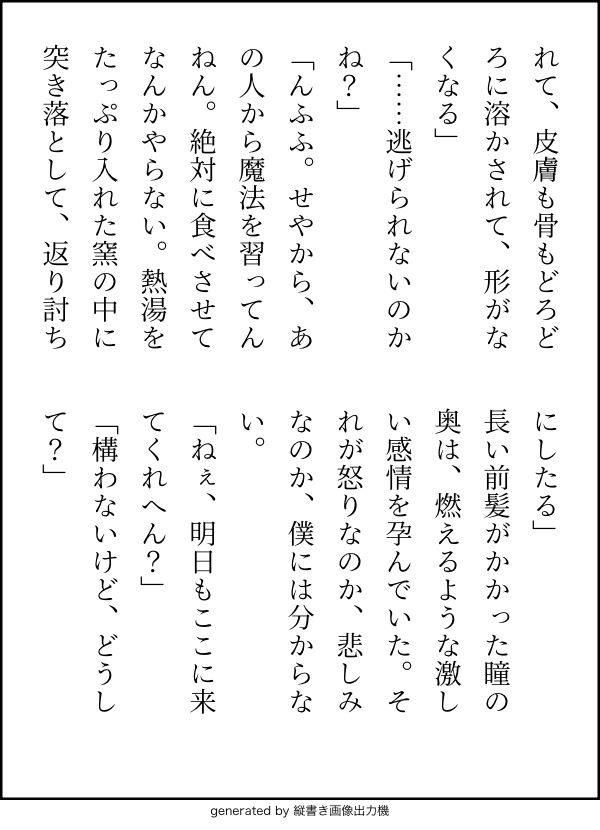 れて、皮膚も骨もどろど
ろに溶かされて、形がな
くなる」
「……逃げられないのか
ね？」
「んふふ。せやから、あ
の人から魔法を習ってん
ねん。絶対に食べさせて
なんかやらない。熱湯を
たっぷり入れた窯の中に
突き落として、返り討ち
にしたる」
長い前髪がかかった瞳の
奥は、燃えるような激し
い感情を孕んでいた。そ
れが怒りなのか、悲しみ
なのか、僕には分からな
い。
「ねぇ、明日もここに来
てくれへん？」
「構わないけど、どうし
て？」
generated by 縦書き画像出力機